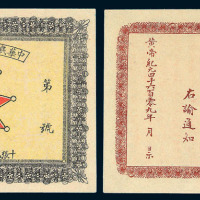 中華
第
號
右諭通知
黃帝紀元四千六百零九年 月 日示